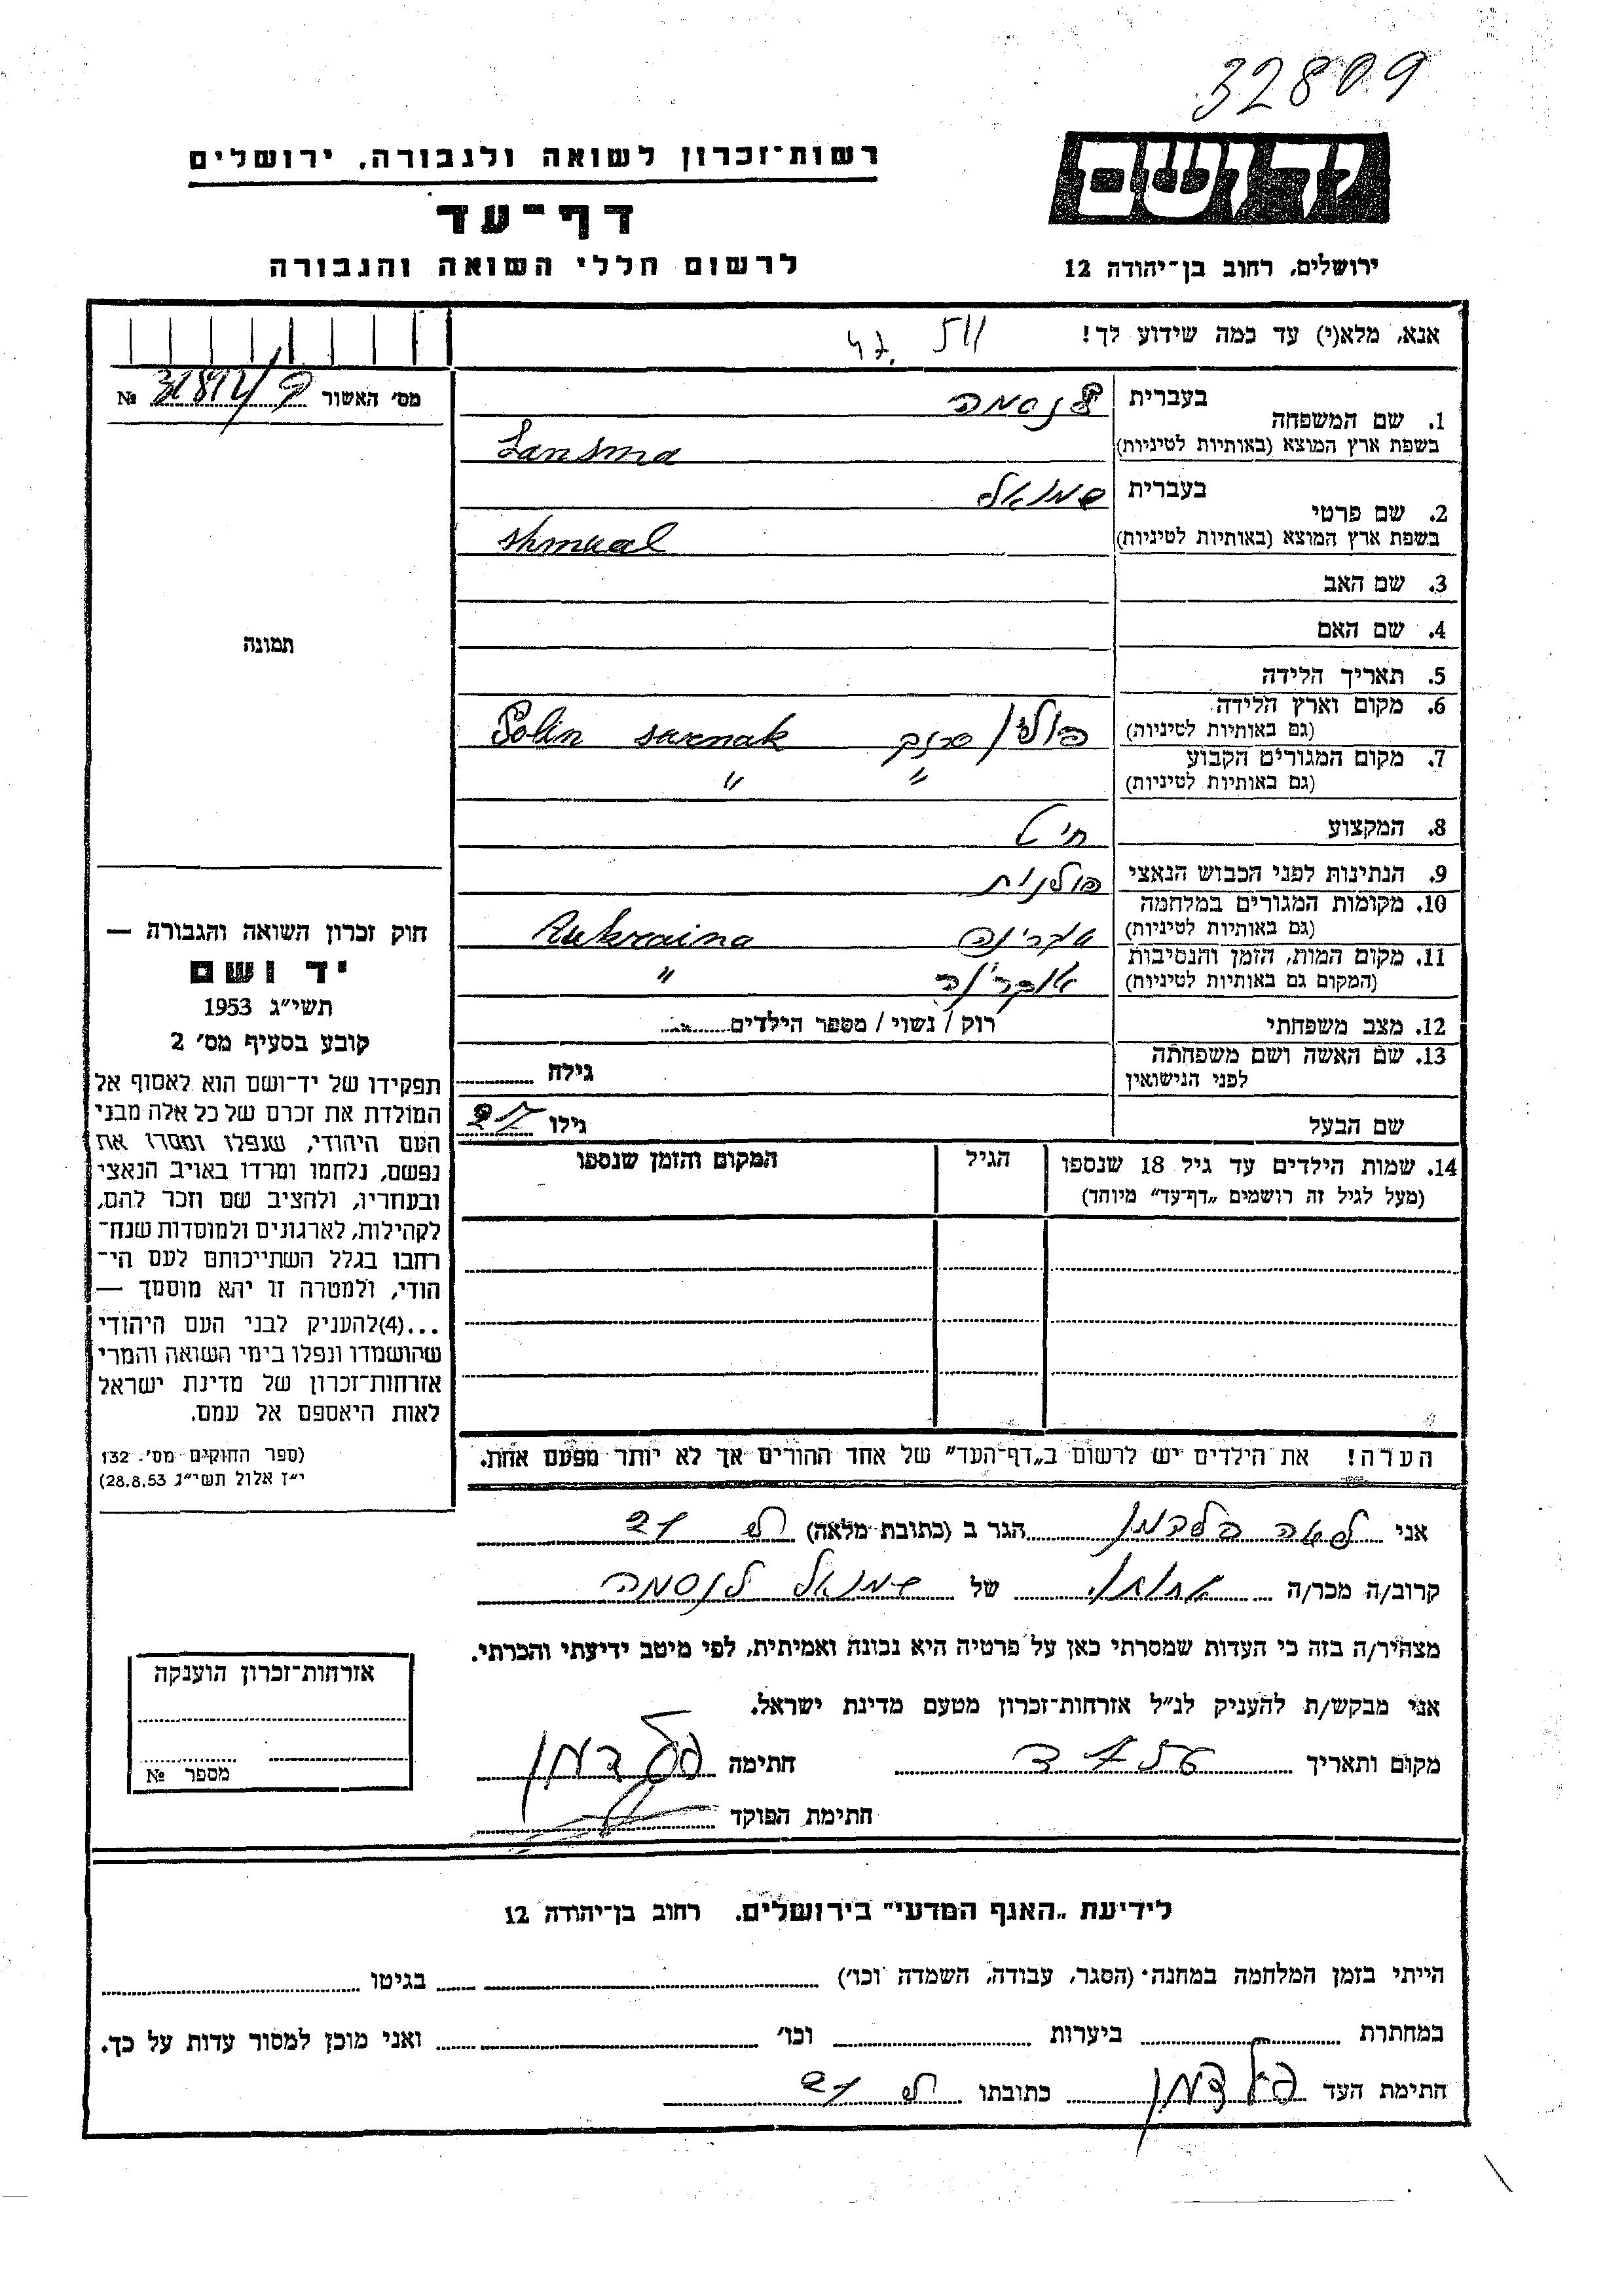 32809
יד ושם
רשות־זכרון לשואה ולגבורה, ירושלים
דף־עד
לרשום חללי השואה והגבורה
ירושלים, רחוב בן־יהודה 12
אנא, מלא(י) עד כמה שידוע לך!
מס׳ האשור №
1. שם המשפחה
בעברית לנסמה
בשפת ארץ המוצא (באותיות לטיניות) Lansma
2. שם פרטי
בעברית שמואל
בשפת ארץ המוצא (באותיות לטיניות) Shmual
3. שם האב
4. שם האם
5. תאריך הלידה
6. מקום וארץ הלידה
(גם באותיות לטיניות) פולין סרנק Sarnak Polin
7. מקום המגורים הקבוע
(גם באותיות לטיניות) " "
8. המקצוע חייט
9. הנתינות לפני הכבוש הנאצי פולנית
10. מקומות המגורים במלחמה
(גם באותיות לטיניות) אוקרינה Aukraina
11. מקום המות, הזמן והנסיבות
(המקום גם באותיות לטיניות) אוקרינה "
12. מצב משפחתי רוק / נשוי / מספר הילדים
13. שם האשה ושם משפחתה
לפני הנישואין גילה
שם הבעל גילו
14. שמות הילדים עד גיל 18 שנספו
(מעל לגיל זה רושמים „דף־עד" מיוחד)
הגיל
המקום והזמן שנספו
תמונה
חוק זכרון השואה והגבורה —
יד ושם
תשי״ג 1953
קובע בסעיף מס׳ 2
תפקידו של יד־ושם הוא לאסוף אל
המולדת את זכרם של כל אלה מבני
העם היהודי, שנפלו ומסרו את
נפשם, נלחמו ומרדו באויב הנאצי
ובעוזריו, ולהציב שם וזכר להם,
לקהילות, לארגונים ולמוסדות שנח־
רחבו בגלל השתייכותם לעם הי־
הודי, ולמטרה זו יהא מוסמך —
...(4)להעניק לבני העם היהודי
שהושמדו ונפלו בימי השואה והמרי
אזרחות־זכרון של מדינת ישראל
לאות היאספם אל עמם.
(ספר החוקים מס׳ 132
י״ז אלול תשי״ג 28.8.53)
הערה! את הילדים יש לרשום ב„דף־העד" של אחד ההורים אך לא יותר מפעם אחת.
אני לאה פלדמן הגר ב (כתובת מלאה)
קרוב/ה מכר/ה אחותו של שמואל לנסמה
מצהיר/ה בזה כי העדות שמסרתי כאן על פרטיה היא נכונה ואמיתית, לפי מיטב ידיעתי והכרתי.
אני מבקש/ת להעניק לנ״ל אזרחות־זכרון מטעם מדינת ישראל.
מקום ותאריך חתימה פלדמן
חתימת הפוקד
אזרחות־זכרון הוענקה
מספר №
לידיעת „האגף המדעי" בירושלים, רחוב בן־יהודה 12
הייתי בזמן המלחמה במחנה (הסגר, עבודה, השמדה וכו׳) בגיטו
במחתרת ביערות וכו׳ ואני מוכן למסור עדות על כך.
חתימת העד פלדמן כתובתו